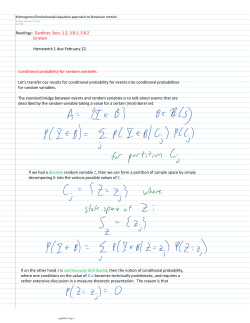 Kolmogorov/Smoluchowski equation approach to Brownian motion
Readings: Gardiner, Secs. 1.2, 3.8.1, 3.8.2
Einstein
Homework 1 due February 22.
Conditional probability for random variables.
Let's transfer our results for conditional probability for events into conditional probabilities
for random variables.
The standard bridge between events and random variables is to talk about events that are
described by the random variable taking a value for a certain (nice) Borel set.
A = {Y ∈ B} B ∈ B(S)
P(Y ∈ B) = ∑_j P(Y ∈ B | C_j) P(C_j)
for partition C_j
If we had a discrete random variable Z, then we can form a partition of sample space by simply
decomposing it into the various possible values of Z.
C_j = {Z = z_j} where
state space of Z is
S_z = {z_j}
P(Y ∈ B) = ∑_j P(Y ∈ B | Z = z_j) P(Z = z_j)
If on the other hand Z is continuously distributed, then the notion of conditional probability,
where one conditions on the value of Z is becomes technically problematic, and requires a
rather extensive discussion in a measure-theoretic presentation. The reason is that
P(Z = z_j) = 0